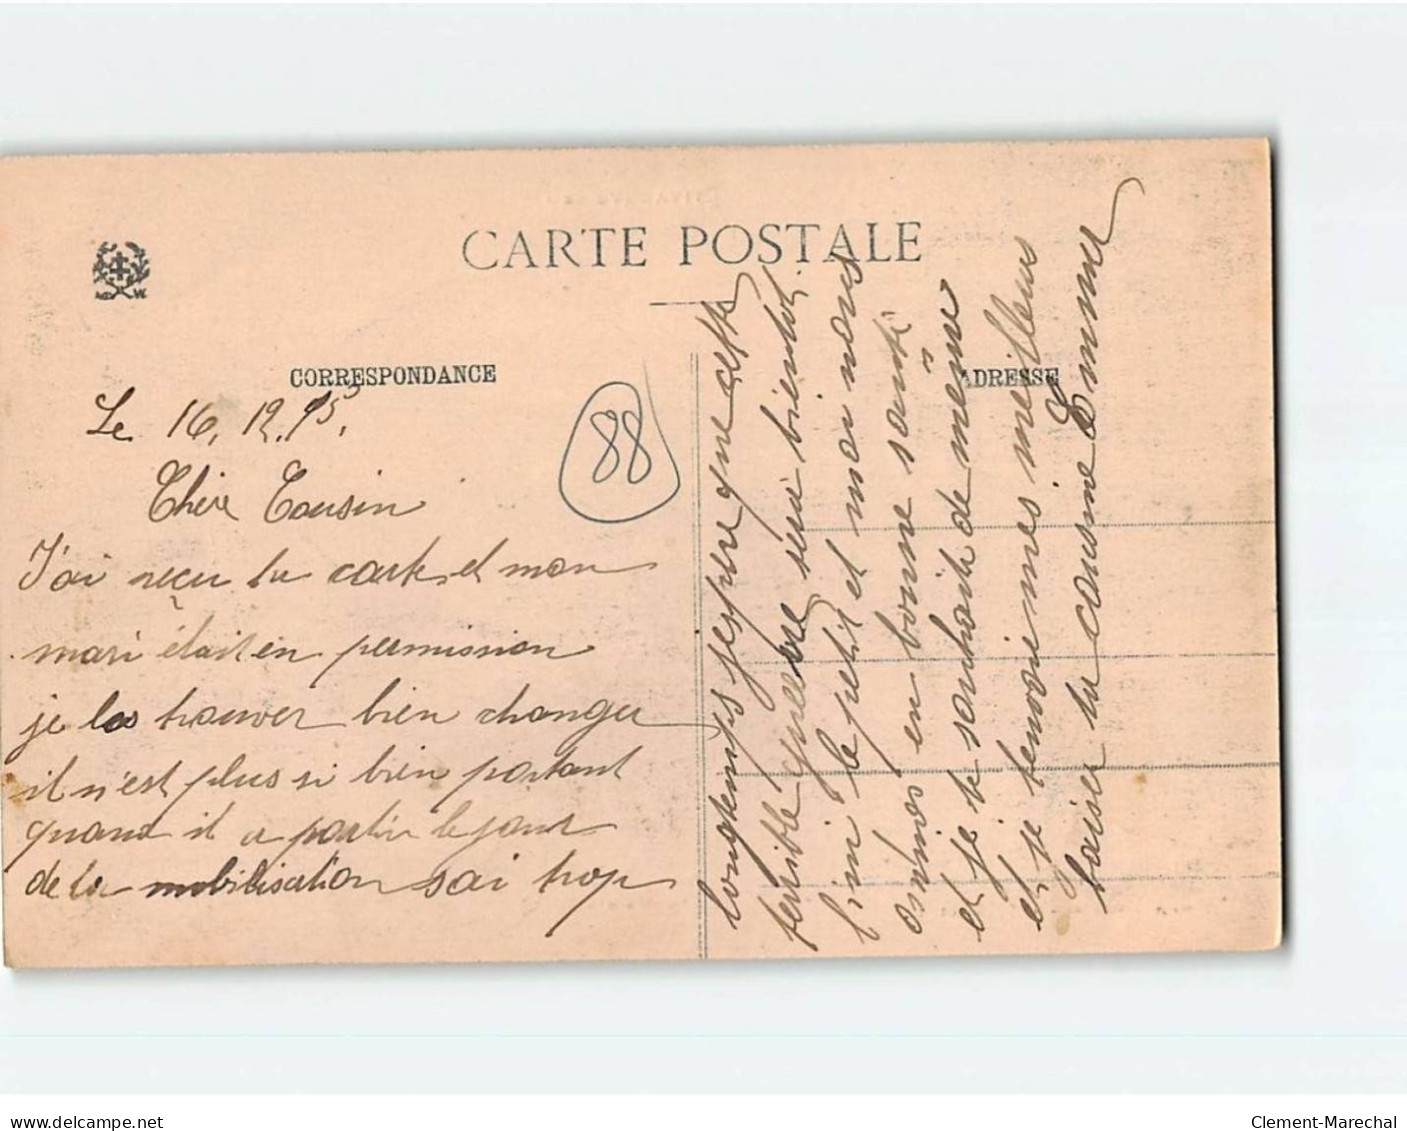 CARTE POSTALE
CORRESPONDANCE
ADRESSE
88
Le 16.12.15.
Chère Cousin
J'ai reçu ta carte et mon
mari était en permission
je les trouver bien changer
il n'est plus si bien portant
quand il a partir le jour
de la mobilisation sai trop
longtemps j'espere que cette
terrible guerre sera bientôt
fini le petit et moi nous
sommes en bonne santé
et je te souhaite de même
et je tenvoie mes meilleurs
baiser ta cousine Emma
delcampe.net
Clement-Marechal